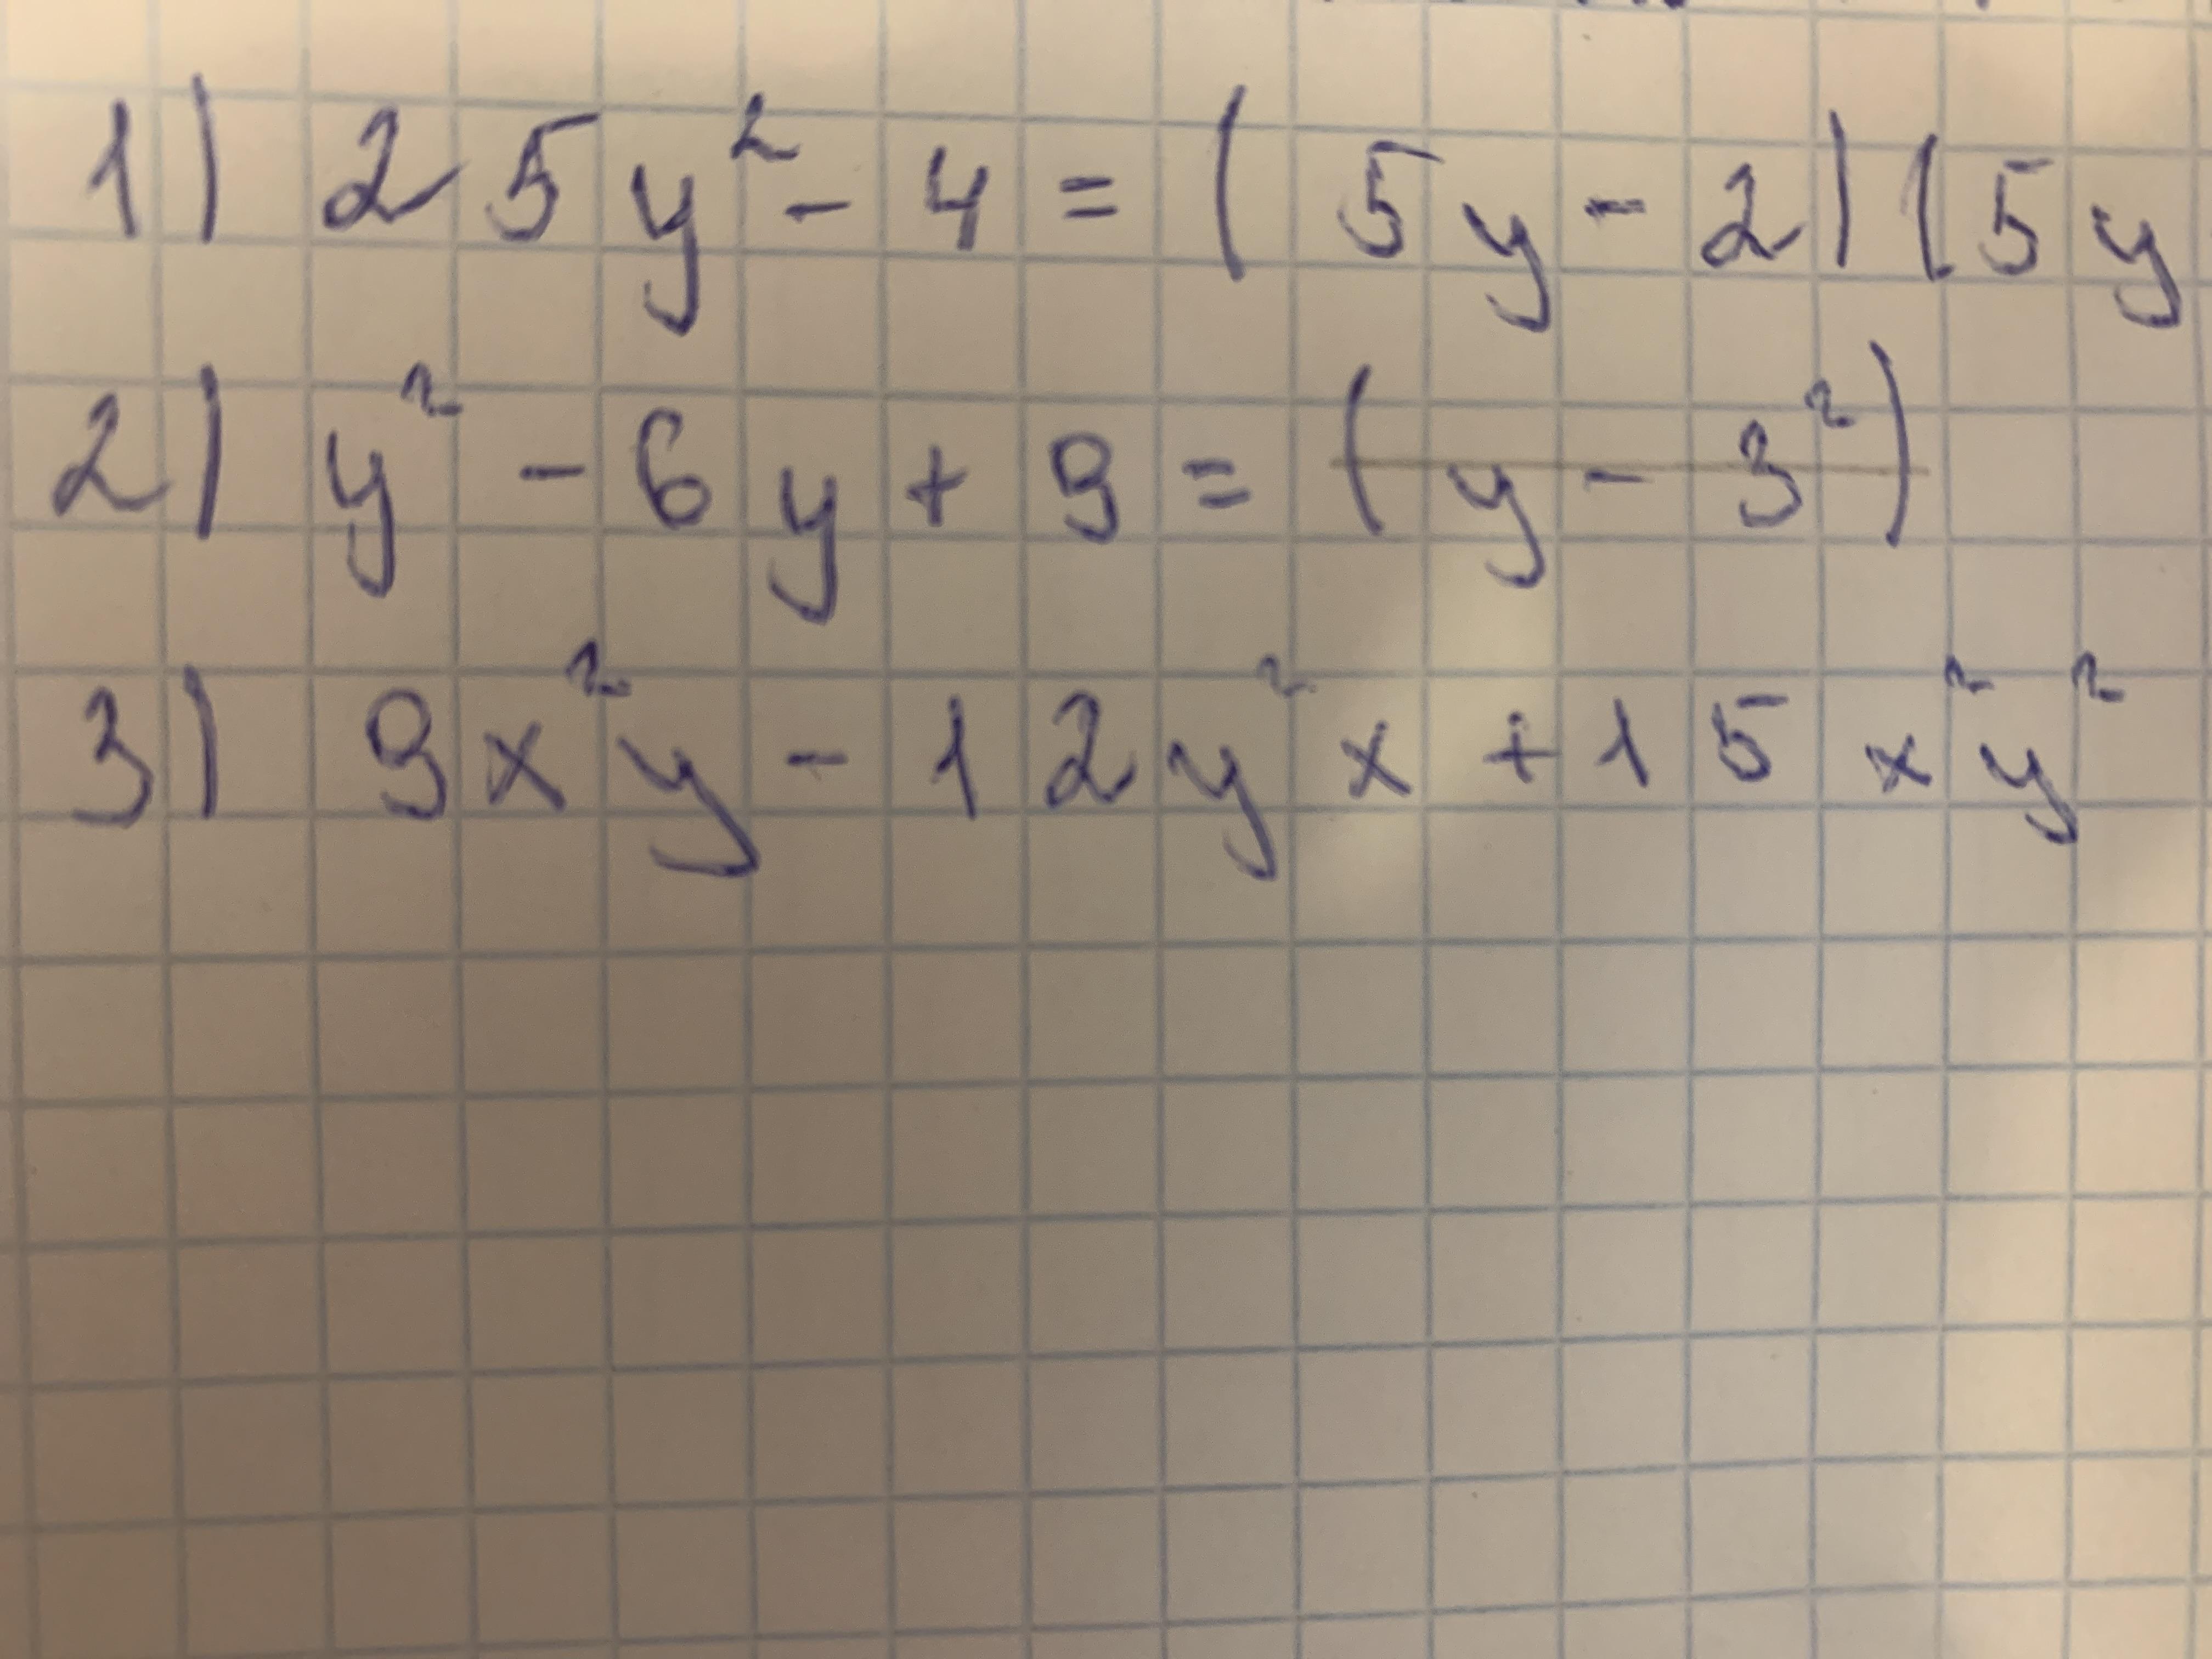 1) 25y² - 4 = (5y - 2)(5y
2) y² - 6y + 9 = (y - 3²)
3) 9x²y - 12y²x + 15x²y²